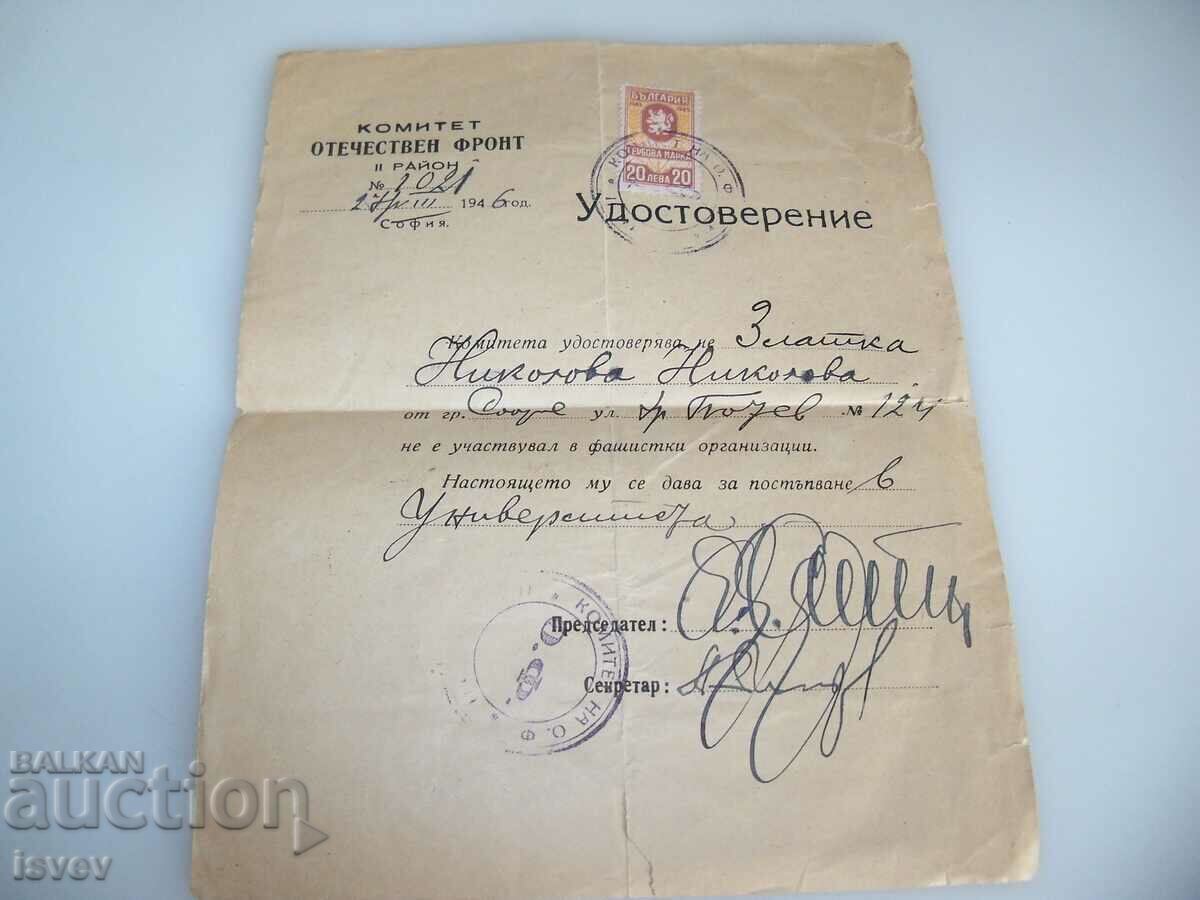 КОМИТЕТ
ОТЕЧЕСТВЕН ФРОНТ
II РАЙОН
№ 1021
III 1946 год.
София.
БЪЛГАРИЯ
1945 1945
ГЕРБОВА МАРКА
20 ЛЕВА 20
КОМИТЕТ НА О. Ф.
Удостоверение
Комитета удостоверява, че Златка
Николова Николова
от гр. София ул. № 124
не е участвувал в фашистки организации.
Настоящето му се дава за постъпване в
Университета
Председател:
Секретар:
КОМИТЕТ НА О. Ф.
О. Ф.
BALKAN
auction
isvev